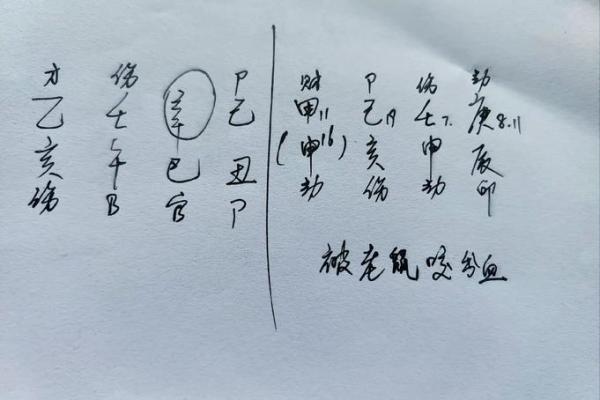 才 伤 P 财 P 伤 劫
乙 壬 辛 己 甲11 己19 壬7. 庚8.11
亥 午 巳 丑 (申16) 亥 申 辰
伤 B 官 P 劫 伤 劫 卯
被老鼠咬出血